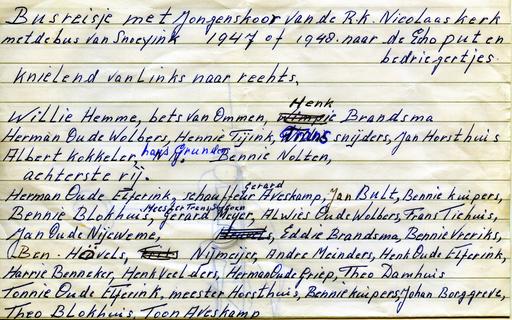 Busreisje met Jongenskoor van de R.K. Nicolaaskerk
met de bus van Snoeyink 1947 of 1948. naar de Echo put en
bedriegertjes.
Knielend van links naar rechts,
Henk
Willie Hemme, bets van Ommen, Brandsma
Herman Oude Wolbers, Hennie Tijink, Frans snijders, Jan Horsthuis
Albert Kokkeler, hans Grunder Bennie Nolten,
achterste rij.
Gerard
Herman Oude Elferink, schauffeur Aveskamp, Jan Bult, Bennie kuipers,
Meester
Bennie Blokhuis, Gerard Meyer, Alwies Oude Wolbers, Frans Tiehuis,
Jan Oude Nijeweme, Eddie Brandsma, Bennie Veeriks,
Ben Hövels, Nijmeijer, Andre Meinders, Henk Oude Elferink,
Harrie Benneker, Henk Veelders, Herman Oude Griep, Theo Damhuis
Tonnie Oude Elferink, meester Horsthuis, Bennie kuipers, Johan Borggreve,
Theo Blokhuis, Toon Aveskamp